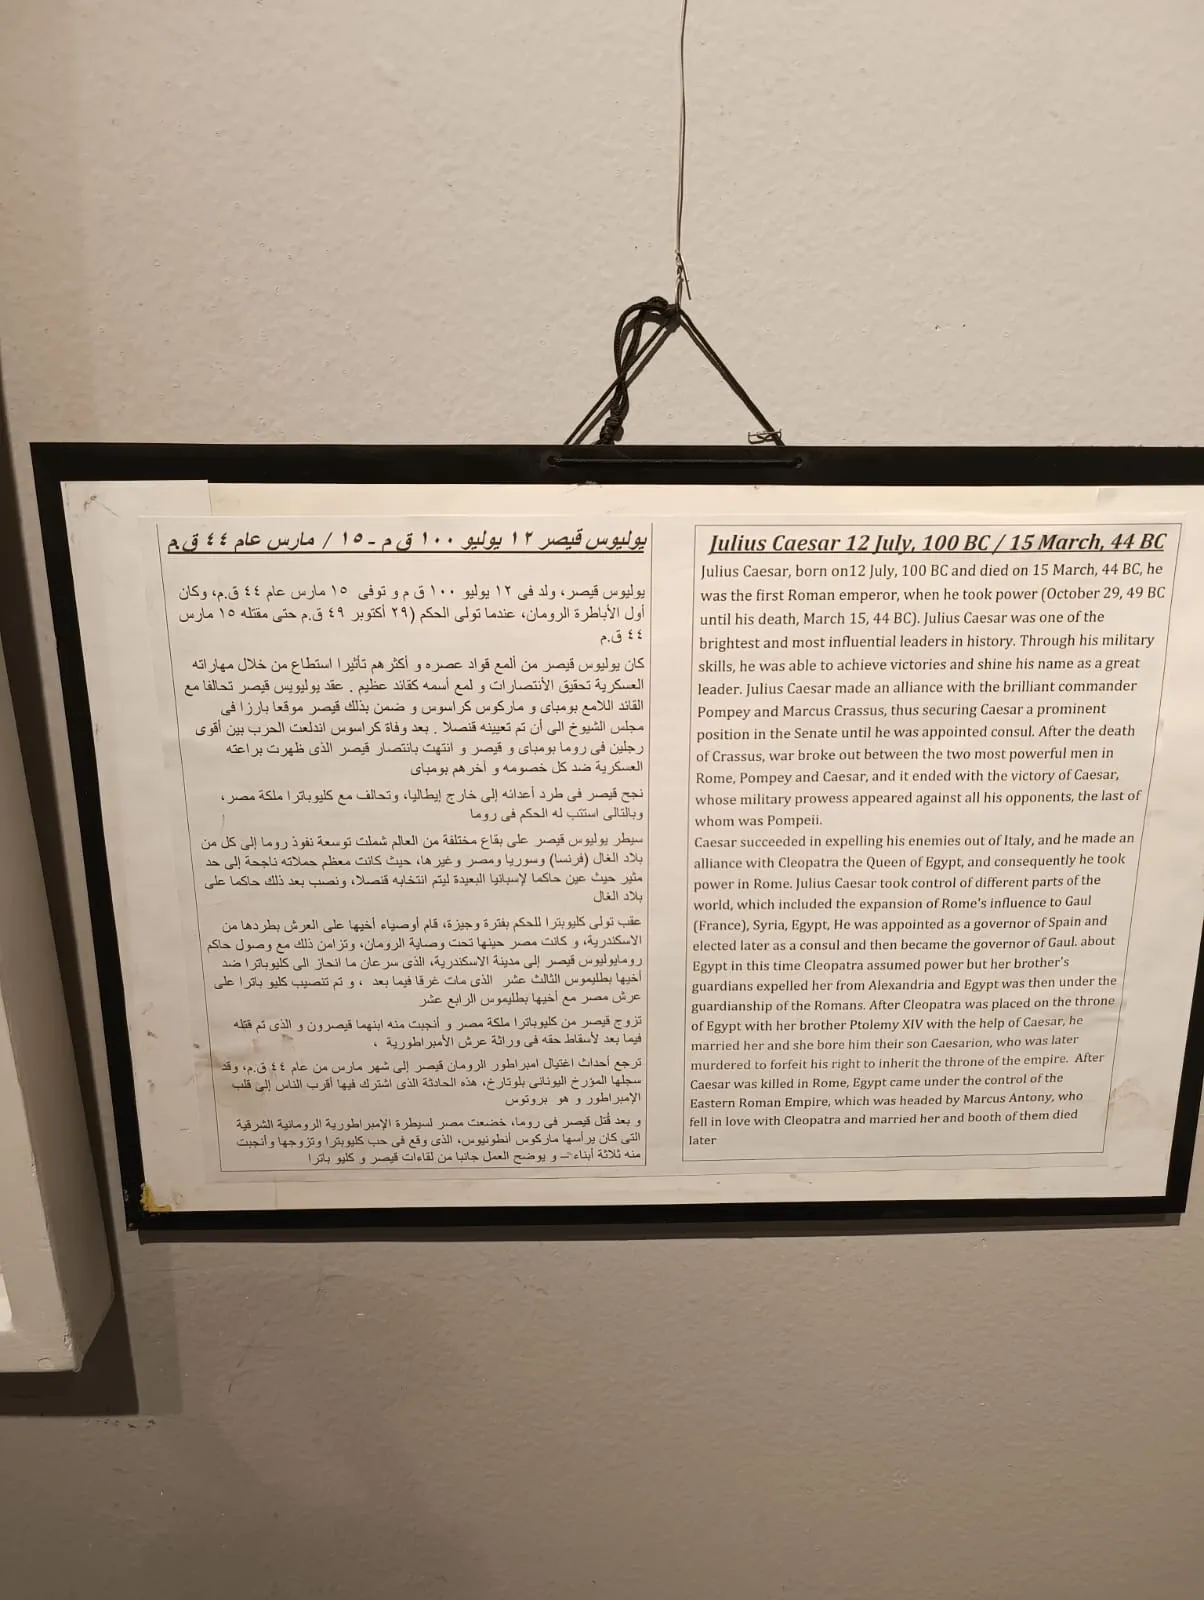 يوليوس قيصر ١٢ يوليو ١٠٠ ق م - ١٥ / مارس عام ٤٤ ق.م
يوليوس قيصر، ولد فى ١٢ يوليو ١٠٠ ق م و توفى ١٥ مارس عام ٤٤ ق.م، وكان
أول الأباطرة الرومان، عندما تولى الحكم (٢٩ أكتوبر ٤٩ ق.م حتى مقتله ١٥ مارس
٤٤ ق.م
كان يوليوس قيصر من ألمع قواد عصره و أكثرهم تأثيرا استطاع من خلال مهاراته
العسكرية تحقيق الأنتصارات و لمع أسمه كقائد عظيم . عقد يوليويس قيصر تحالفا مع
القائد اللامع بومباى و ماركوس كراسوس و ضمن بذلك قيصر موقعا بارزا فى
مجلس الشيوخ الى أن تم تعيينه قنصلا . بعد وفاة كراسوس اندلعت الحرب بين أقوى
رجلين فى روما بومباى و قيصر و انتهت بانتصار قيصر الذى ظهرت براعته
العسكرية ضد كل خصومه و أخرهم بومباى
نجح قيصر فى طرد أعدائه إلى خارج إيطاليا، وتحالف مع كليوباترا ملكة مصر،
وبالتالى استتب له الحكم فى روما
سيطر يوليوس قيصر على بقاع مختلفة من العالم شملت توسعة نفوذ روما إلى كل من
بلاد الغال (فرنسا) وسوريا ومصر وغيرها، حيث كانت معظم حملاته ناجحة إلى حد
مثير حيث عين حاكما لإسبانيا البعيدة ليتم انتخابه قنصلا، ونصب بعد ذلك حاكما على
بلاد الغال
عقب تولى كليوبترا للحكم بفترة وجيزة، قام أوصياء أخيها على العرش بطردها من
الاسكندرية، و كانت مصر حينها تحت وصاية الرومان، وتزامن ذلك مع وصول حاكم
رومايوليوس قيصر إلى مدينة الاسكندرية، الذى سرعان ما انحاز الى كليوباترا ضد
أخيها بطليموس الثالث عشر الذى مات غرقا فيما بعد ، و تم تنصيب كليو باترا على
عرش مصر مع أخيها بطليموس الرابع عشر
تزوج قيصر من كليوباترا ملكة مصر و أنجبت منه ابنهما قيصرون و الذى تم قتله
فيما بعد لأسقاط حقه فى وراثة عرش الأمبراطورية ،
ترجع أحداث اغتيال امبراطور الرومان قيصر إلى شهر مارس من عام ٤٤ ق.م، وقد
سجلها المؤرخ اليونانى بلوتارخ، هذه الحادثة الذى اشترك فيها أقرب الناس إلى قلب
الإمبراطور و هو بروتوس
و بعد قُتل قيصر فى روما، خضعت مصر لسيطرة الإمبراطورية الرومانية الشرقية
التى كان يرأسها ماركوس أنطونيوس، الذى وقع فى حب كليوبترا وتزوجها وأنجبت
منه ثلاثة أبناء – و يوضح العمل جانبا من لقاءات قيصر و كليو باترا
Julius Caesar 12 July, 100 BC / 15 March, 44 BC
Julius Caesar, born on12 July, 100 BC and died on 15 March, 44 BC, he
was the first Roman emperor, when he took power (October 29, 49 BC
until his death, March 15, 44 BC). Julius Caesar was one of the
brightest and most influential leaders in history. Through his military
skills, he was able to achieve victories and shine his name as a great
leader. Julius Caesar made an alliance with the brilliant commander
Pompey and Marcus Crassus, thus securing Caesar a prominent
position in the Senate until he was appointed consul. After the death
of Crassus, war broke out between the two most powerful men in
Rome, Pompey and Caesar, and it ended with the victory of Caesar,
whose military prowess appeared against all his opponents, the last of
whom was Pompeii.
Caesar succeeded in expelling his enemies out of Italy, and he made an
alliance with Cleopatra the Queen of Egypt, and consequently he took
power in Rome. Julius Caesar took control of different parts of the
world, which included the expansion of Rome's influence to Gaul
(France), Syria, Egypt, He was appointed as a governor of Spain and
elected later as a consul and then became the governor of Gaul. about
Egypt in this time Cleopatra assumed power but her brother's
guardians expelled her from Alexandria and Egypt was then under the
guardianship of the Romans. After Cleopatra was placed on the throne
of Egypt with her brother Ptolemy XIV with the help of Caesar, he
married her and she bore him their son Caesarion, who was later
murdered to forfeit his right to inherit the throne of the empire. After
Caesar was killed in Rome, Egypt came under the control of the
Eastern Roman Empire, which was headed by Marcus Antony, who
fell in love with Cleopatra and married her and booth of them died
later